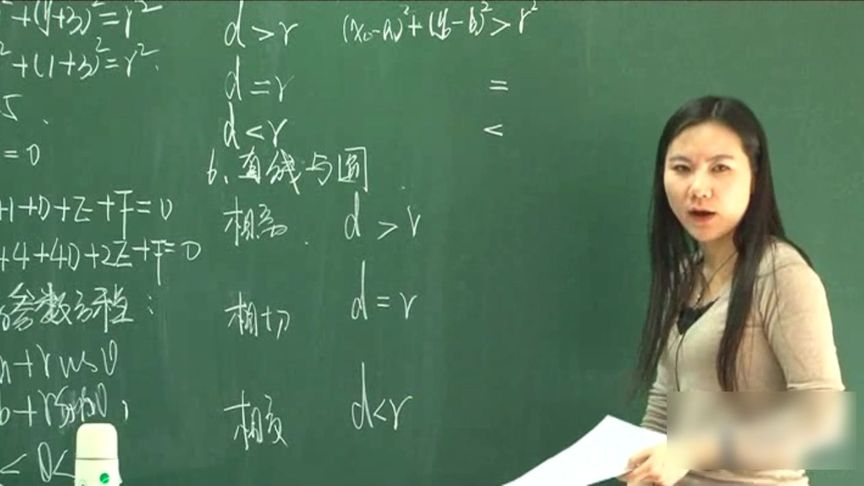 ²+(y+3)²=r²
²+(1+3)²=r²
5
=0
+1+D+E+F=0
+4+4D+2E+F=0
参数方程:
a+rcosθ
b+rsinθ,
<θ<
d>r (x₀-a)²+(y-b)²>r²
d=r =
d<r <
6、直线与圆
相离 d>r
相切 d=r
相交 d<r